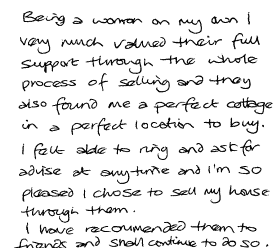 Being a woman on my own I
very much valued their full
support through the whole
process of selling and they
also found me a perfect cottage
in a perfect location to buy.
I felt able to ring and ask for
advise at anytime and I'm so
pleased I chose to sell my house
through them.
I have recommended them to
friends and shall continue to do so.